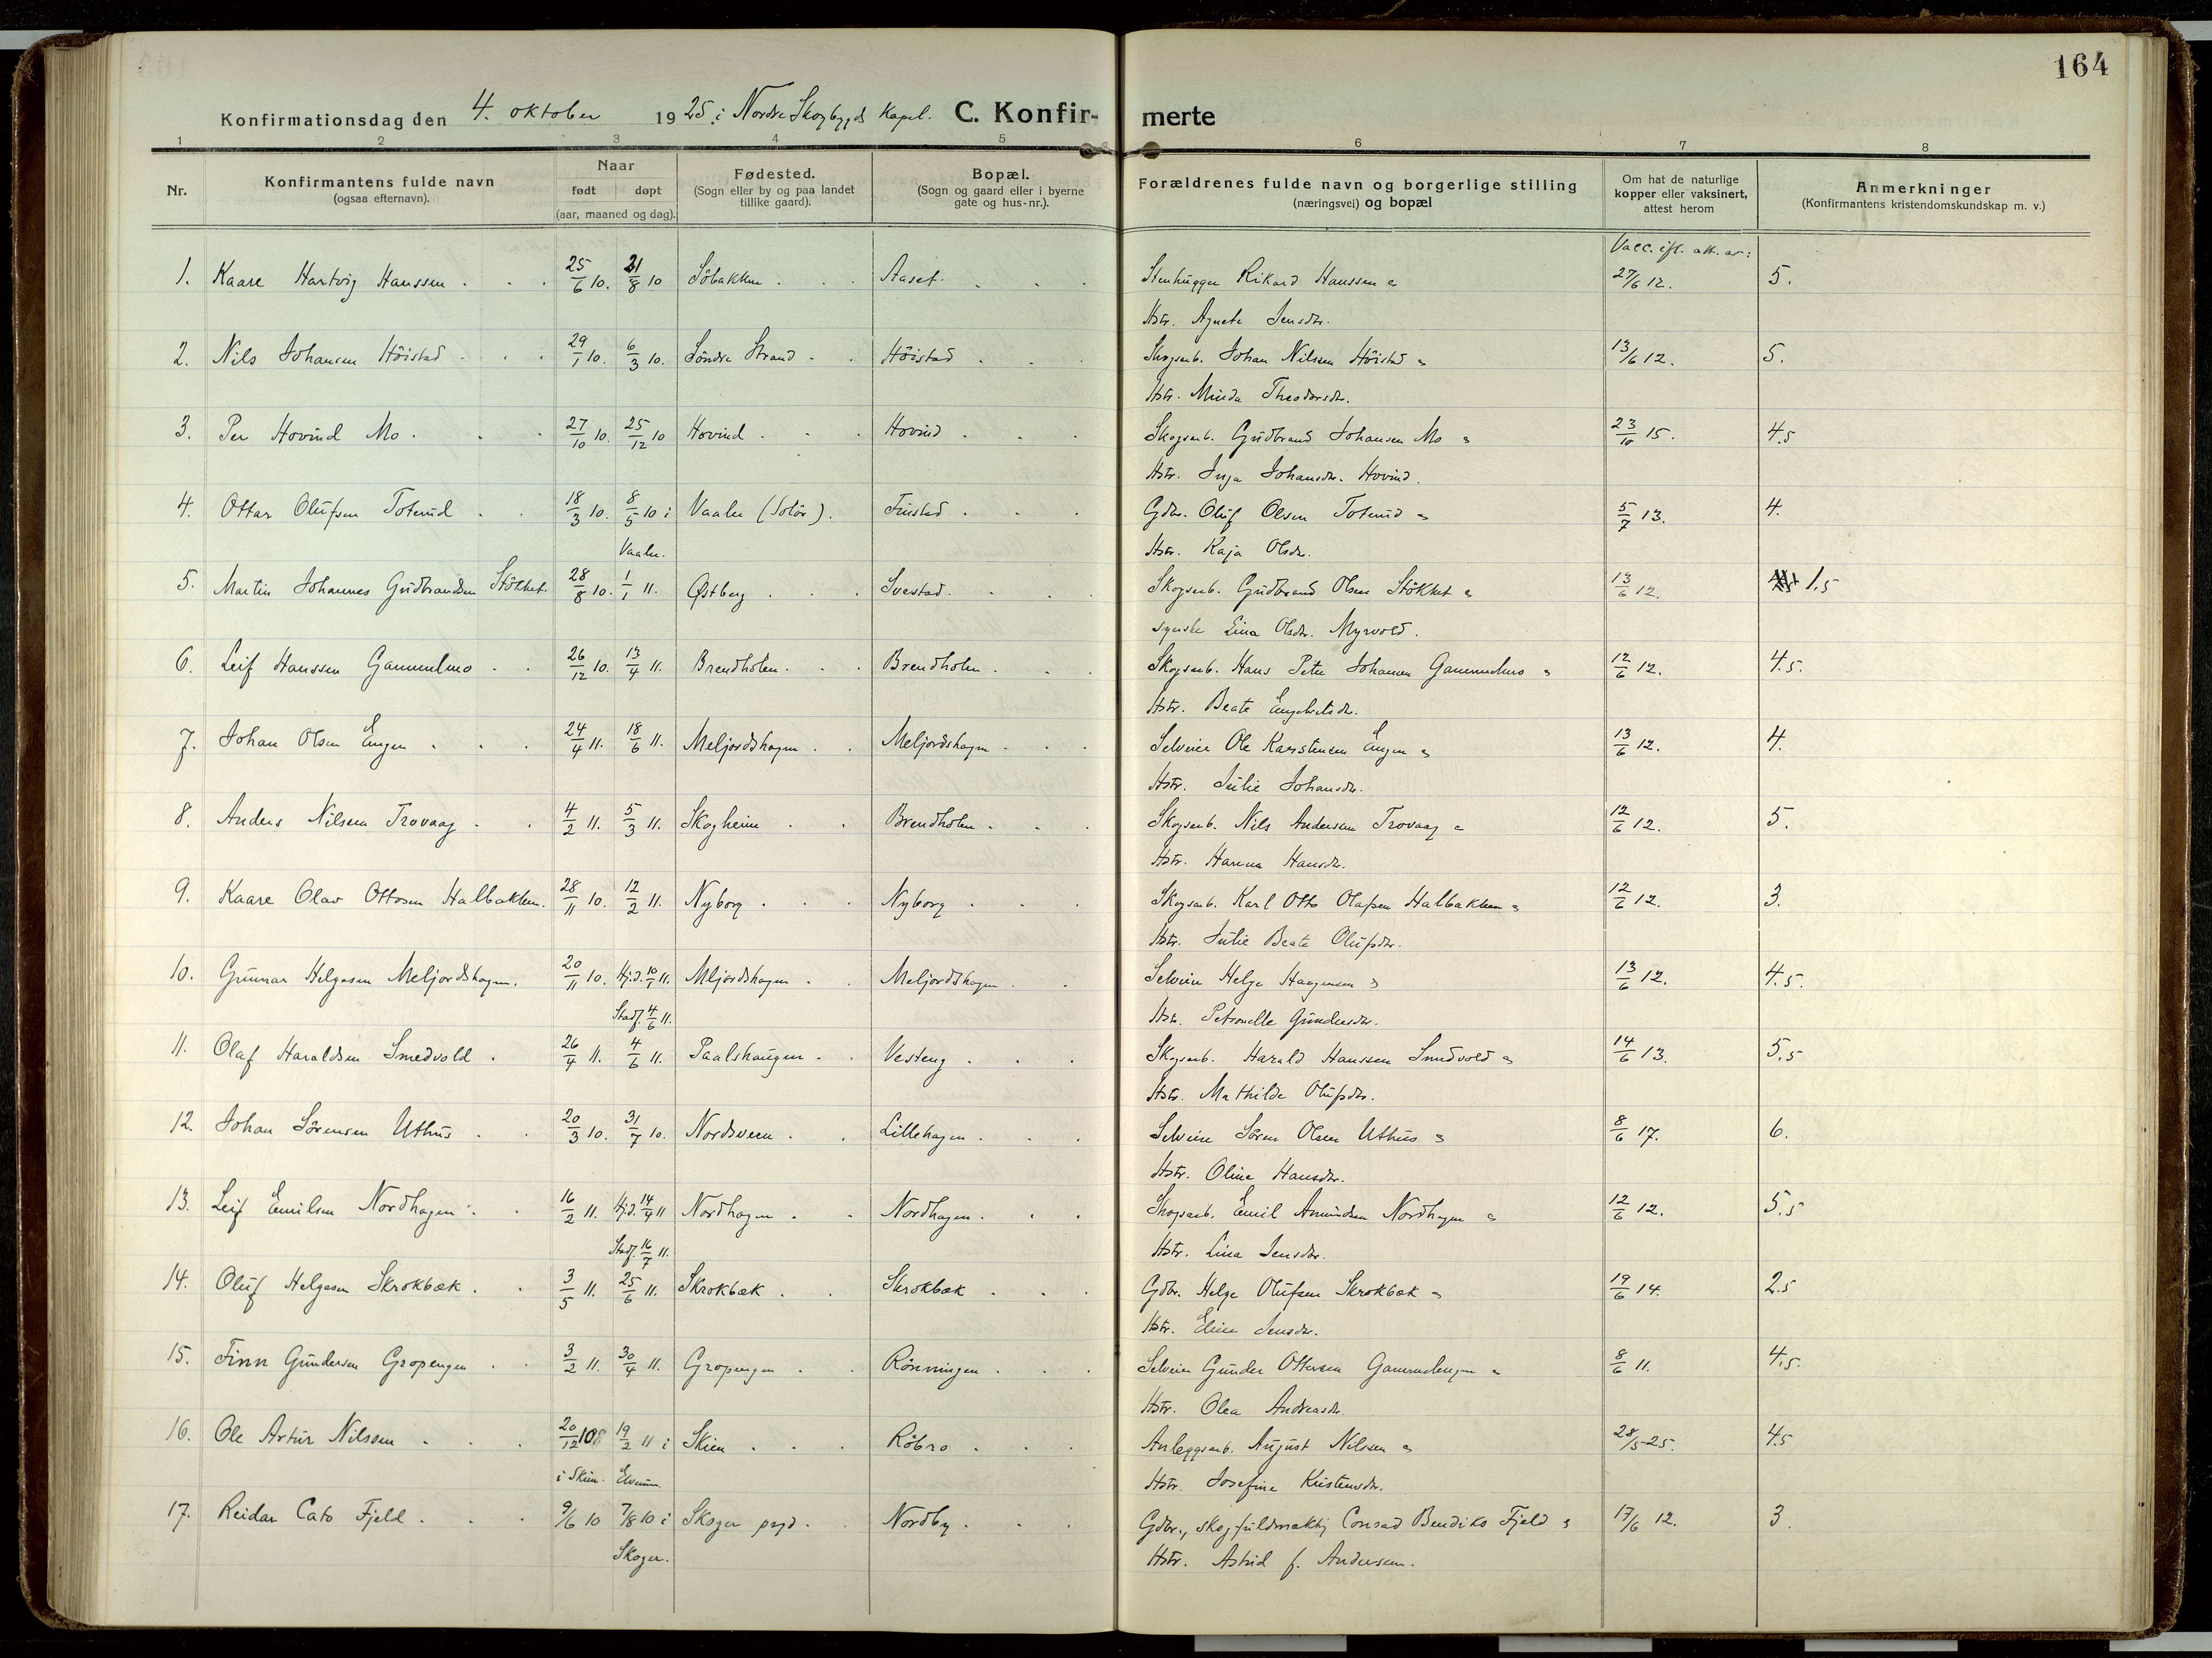 164
Konfirmationsdag den 4. oktober 1925 i Nordre Skogbygds Kapel. C. Konfir- merte
1 2 3 4 5 6 7 8
Nr. Konfirmantens fulde navn (ogsaa efternavn). Naar født døpt (aar, maaned og dag). Fødested. (Sogn eller by og paa landet tillike gaard). Bopæl. (Sogn og gaard eller i byerne gate og hus-nr.). Forældrenes fulde navn og borgerlige stilling (næringsvei) og bopæl Om hat de naturlige kopper eller vaksinert, attest herom Anmerkninger (Konfirmantens kristendomskundskap m. v.)
Vacc. ifl. att. av:
1. Kaare Hartvig Hanssen 25/6 10. 21/8 10 Söbakken Aaset Stenhugger Rikard Hanssen 27/6 12. 5.
Hstr. Agnete Jensdtr.
2. Nils Johansen Höistad 29/1 10. 6/3 10. Söndre Strand Höistad Skogsarb. Johan Nilsen Höistad 13/6 12. 5.
Hstr. Minda Theodorsdtr.
3. Per Hovind Mo 27/10 10. 25/12 10 Hovind Hovind Skogsarb. Gudbrand Johansen Mo 23/10 15. 4.5
Hstr. Inga Johansdtr. Hovind.
4. Ottar Olufsen Toterud 18/3 10. 8/5 10 i Vaaler (Solör). Furstad Gdbr. Oluf Olsen Toterud 5/7 13. 4.
Vaaler. Hstr. Kaja Olsdtr.
5. Martin Johannes Gudbrandsen Stökket 28/8 10. 1/1 11. Østberg Svestad Skogsarb. Gudbrand Olsen Stökket 13/6 12. 1.5
Lina Olsdtr. Myrvold.
6. Leif Hanssen Gammelmo 26/12 10. 13/4 11. Brendholen Brendholen Skogsarb. Hans Peter Johansen Gammelmo 12/6 12. 4.5.
Hstr. Beate Engebretsdtr.
7. Johan Olsen Engen 24/4 11. 18/6 11. Meljordshagen Meljordshagen Selveier Ole Karstensen Engen 13/6 12. 4.
Hstr. Julie Johansdtr.
8. Anders Nilsen Trovaag 4/2 11. 5/3 11. Skogheim Brendholen Skogsarb. Nils Andersen Trovaag 12/6 12. 5.
Hstr. Hanna Hansdtr.
9. Kaare Olav Ottosen Halbakken 28/11 10. 12/2 11. Nyborg Nyborg Skogsarb. Karl Otto Olafsen Halbakken 12/6 12. 3.
Hstr. Julie Beate Olufsdtr.
10. Gunnar Helgesen Meljordshagen. 20/11 10. Hj.d. 10/1 11. Mljordshagen Meljordshagen Selveier Helge Haagensen 13/6 12. 4.5.
Stadf. 4/6 11. Hstr. Petronelle Gundersdtr.
11. Olaf Haraldsen Smedvold 26/4 11. 4/6 11. Paalshaugen Vesteng Skogsarb. Harald Hanssen Smedvold 14/6 13. 5.5
Hstr. Mathilde Olufsdtr.
12. Johan Sörensen Uthus 20/3 10. 31/7 10. Nordsveen Lillehagen Selveier Sören Olsen Uthus 8/6 17. 6.
Hstr. Oline Hansdtr.
13. Leif Emilsen Nordhagen 16/2 11. Hj.d. 14/4 11 Nordhagen Nordhagen Skogsarb. Emil Amundsen Nordhagen 12/6 12. 5.5
Stadf. 16/7 11. Hstr. Lina Jensdtr.
14. Oluf Helgesen Skrokbæk 3/5 11. 25/6 11. Skrokbæk Skrokbæk Gdbr. Helge Olufsen Skrokbæk 19/6 14. 2.5
Hstr. Eline Jensdtr.
15. Finn Gundersen Gropengen 3/2 11. 30/4 11. Gropengen Rönningen Selveier Gunder Ottersen Gammelengen 8/6 11. 4.5.
Hstr. Olea Andreasdtr.
16. Ole Artur Nilssen 20/12 10 19/2 11 i Skien Röbro Anleggsarb. August Nilsen 28/5 25. 4.5
i Skien. Elverum. Hstr. Josefine Kristensdtr.
17. Reidar Cato Fjeld 9/6 10 7/8 10 i Skoger prgd. Nordby Gdbr., skogfuldmektig Conrad Bendiks Fjeld 17/6 12. 3.
Skoger. Hstr. Astrid f. Andersen.